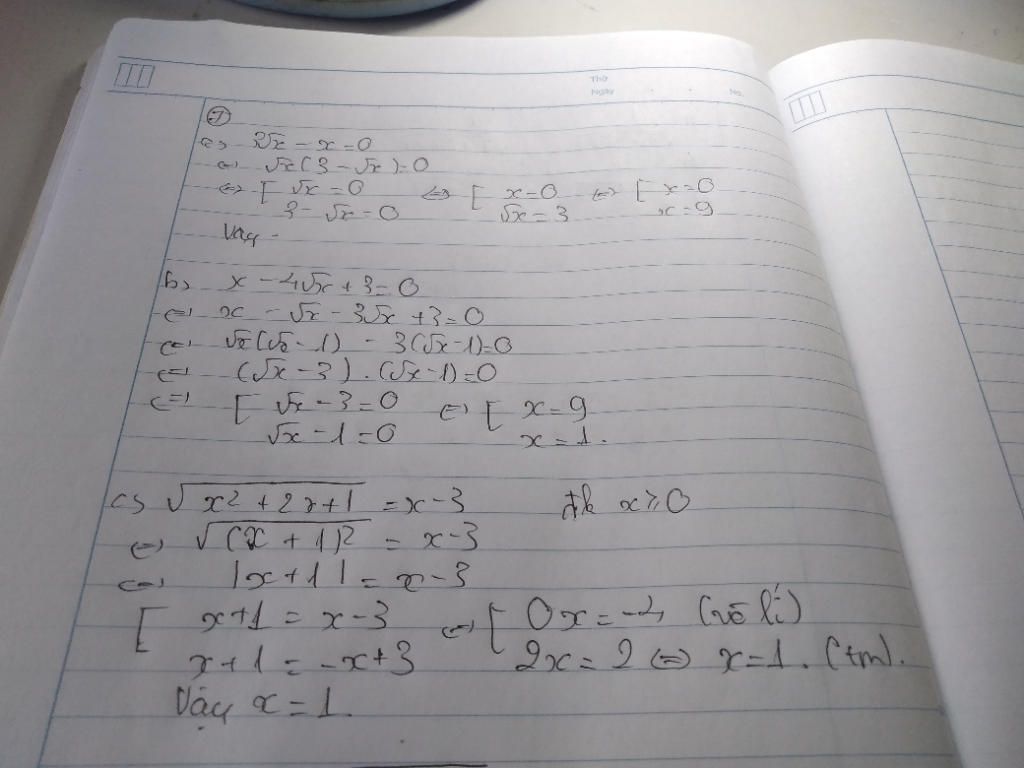 Thứ
Ngày No.
7
a, 3√x - x = 0
<=> √x (3 - √x) = 0
<=> [ √x = 0 <=> [ x = 0 <=> [ x = 0
3 - √x = 0 √x = 3 x = 9
Vậy -
b, x - 4√x + 3 = 0
<=> x - √x - 3√x + 3 = 0
<=> √x (√x - 1) - 3(√x - 1) = 0
<=> (√x - 3) . (√x - 1) = 0
<=> [ √x - 3 = 0 <=> [ x = 9
√x - 1 = 0 x = 1.
c, √(x² + 2x + 1) = x - 3 đk x ≥ 0
<=> √(x + 1)² = x - 3
<=> |x + 1| = x - 3
[ x + 1 = x - 3 <=> [ 0x = -4 (vô lí)
x + 1 = -x + 3 2x = 2 <=> x = 1. (tm).
Vậy x = 1.